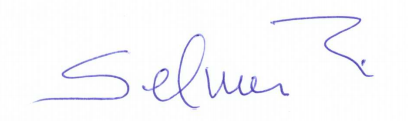 Selmer R.